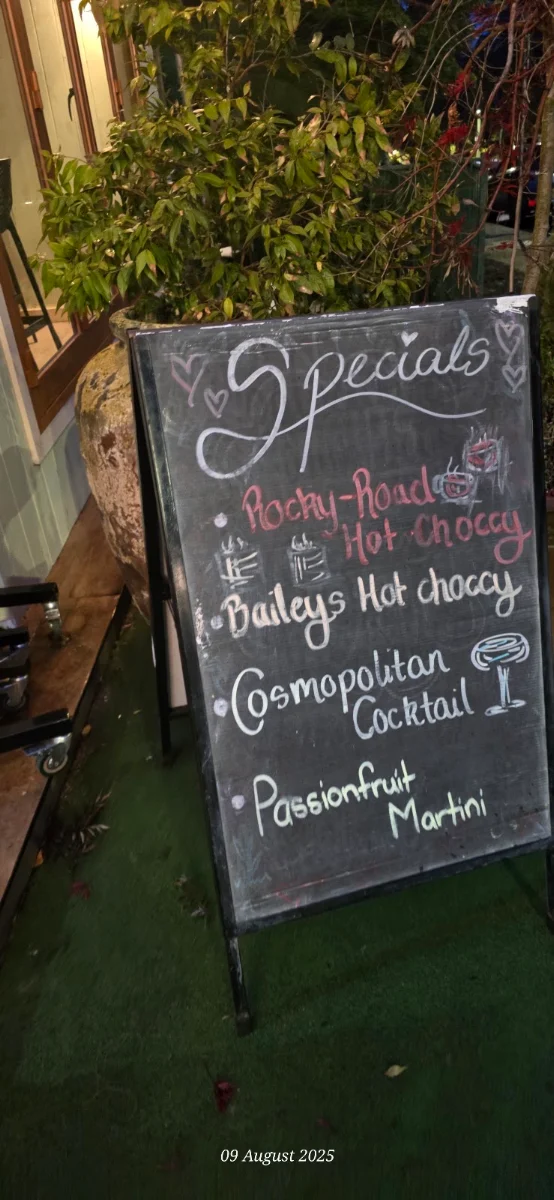 Specials
Rocky-Road
Hot Choccy
Baileys Hot choccy
Cosmopolitan
Cocktail
Passionfruit
Martini
09 August 2025